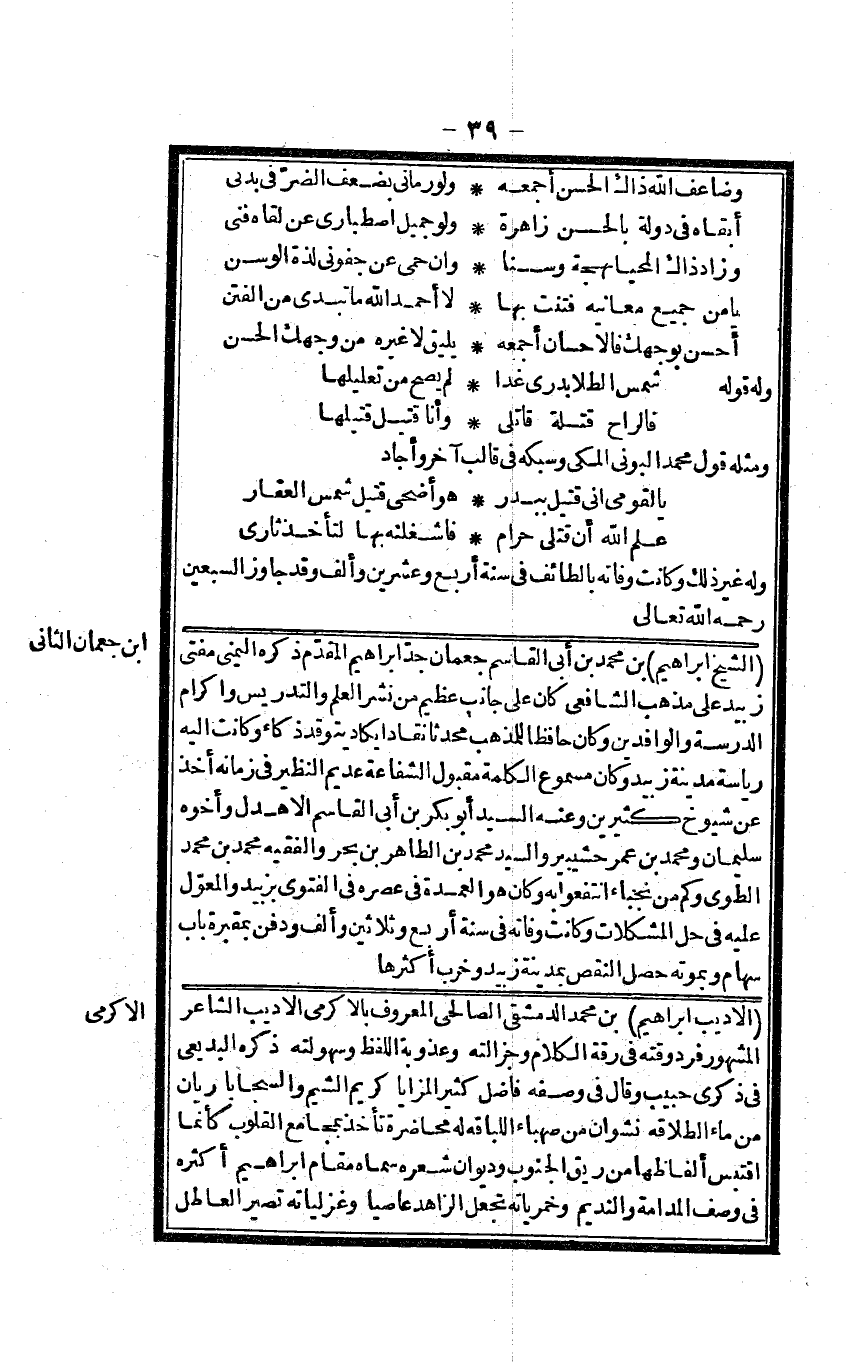 - ٣٩ -
وضاعف الله ذاك الحسن أجمعه * ولو رمانى بضعف الضرّ فى بدنى
أبقاه فى دولة بالحسن زاهرة * ولو جميل اصطبارى عن لقاه فنى
وزاد ذاك المحيا بهجة وسنا * وان حمى عن جفونى لذة الوسن
يا من جميع معانيه فتنت بها * لا أحمد الله ما تبدى من الفتن
أحسن بوجهك فالاحسان أجمعه * يليق لا غيره من وجهك الحسن
وله قوله شمس الطلا بدرى غدا * لم يصح من تعليلها
فالراح قتلة قاتلى * وأنا قتيل قتيلها
ومثله قول محمد البونى المكى وسبكه فى قالب آخر وأجاد
يا لقومى انى قتيل ببدر * هو أضحى قتيل شمس العقار
علم الله أن قتلى حرام * فاشغلته بها لتأخذ ثارى
وله غير ذلك وكانت وفاته بالطائف فى سنة أربع وعشرين وألف وقد جاوز السبعين
رحمه الله تعالى
ابن جعمان الثانى
(الشيخ ابراهيم) بن محمد بن أبى القاسم جعمان جدّ ابراهيم المقدّم ذكره اليمنى مفتى
زبيد على مذهب الشافعى كان على جانب عظيم من نشر العلم والتدريس واكرام
الدرسة والوافدين وكان حافظا للمذهب محدثا نقادا يكاد يتوقد ذكاء وكانت اليه
رياسة مدينة زبيد وكان مسموع الكلمة مقبول الشفاعة عديم النظير فى زمانه أخذ
عن شيوخ كثيرين وعنه السيد أبو بكر بن أبى القاسم الاهدل وأخوه
سليمان ومحمد بن عمر حشيبر والسيد محمد بن الطاهر بن بحر والفقيه محمد بن محمد
الطوى وكم من نجباء انتفعوا به وكان هو العمدة فى عصره فى الفتوى بزبيد والمعوّل
عليه فى حل المشكلات وكانت وفاته فى سنة أربع وثلاثين وألف ودفن بمقبرة باب
سهام وبموته حصل النقص بمدينة زبيد وخرب أكثرها
الاكرمى
(الاديب ابراهيم) بن محمد الدمشقى الصالحى المعروف بالاكرمى الاديب الشاعر
المشهور فرد وقته فى رقة الكلام وجزالته وعذوبة اللفظ وسهولته ذكره البديعى
فى ذكرى حبيب وقال فى وصفه فاضل كثير المزايا كريم الشيم والسجايا ريان
من ماء الطلاقه نشوان من صهباء اللباقه له محاضرة تأخذ بمجامع القلوب كأنما
اقتبس ألفاظها من ريق الجنوب وديوان شعره سماه مقام ابراهيم أكثره
فى وصف المدامة والنديم وخمرياته تجعل الزاهد عاصيا وغزلياته تصير العاطل